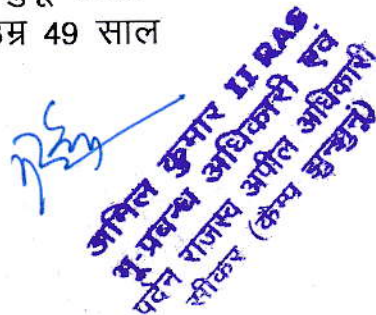 उम्र 49 साल
अनिल कुमार II RAS
भू-प्रबन्ध अधिकारी एवं
पदेन राजस्व अपील अधिकारी
सीकर (कैम्प झुन्झुनूं)